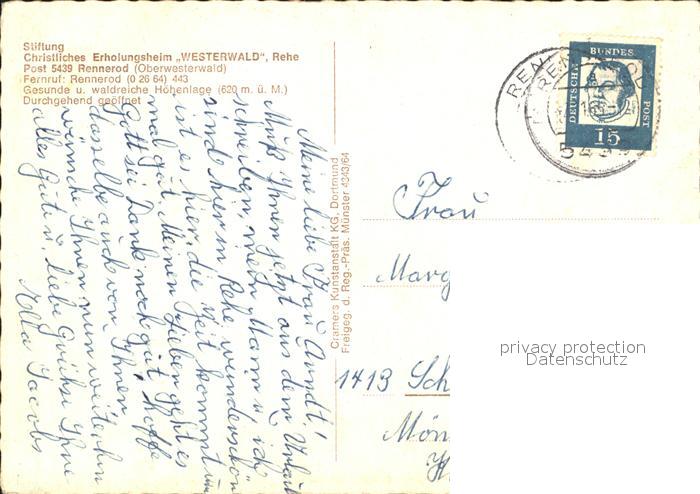 Stiftung
Christliches Erholungsheim „WESTERWALD", Rehe
Post 5439 Rennerod (Oberwesterwald)
Fernruf: Rennerod (0 26 64) 443
Gesunde u. waldreiche Höhenlage (620 m. ü. M.)
Durchgehend geöffnet
Meine liebe Frau Arndt!
Muß Ihnen jetzt aus dem Urlaub
schreiben, mein Mann u. ich
sind hier in Rehe, wunderschön
ist es hier, die Zeit kommt
mal gut Meinen Lieben geht es
Gott sei Dank noch gut, hoffe
dasselbe auch von Ihnen
wünsche Ihnen nun weiterhin
alles Gute u. liebe Grüße Ihre
Ella Jacobs
Cramers Kunstanstalt KG, Dortmund
Freigeg. d. Reg.-Präs. Münster 4343/64
DEUTSCHE
BUNDES
POST
15
Frau
Marg
1413 Sch
Mön
H
privacy protection
Datenschutz